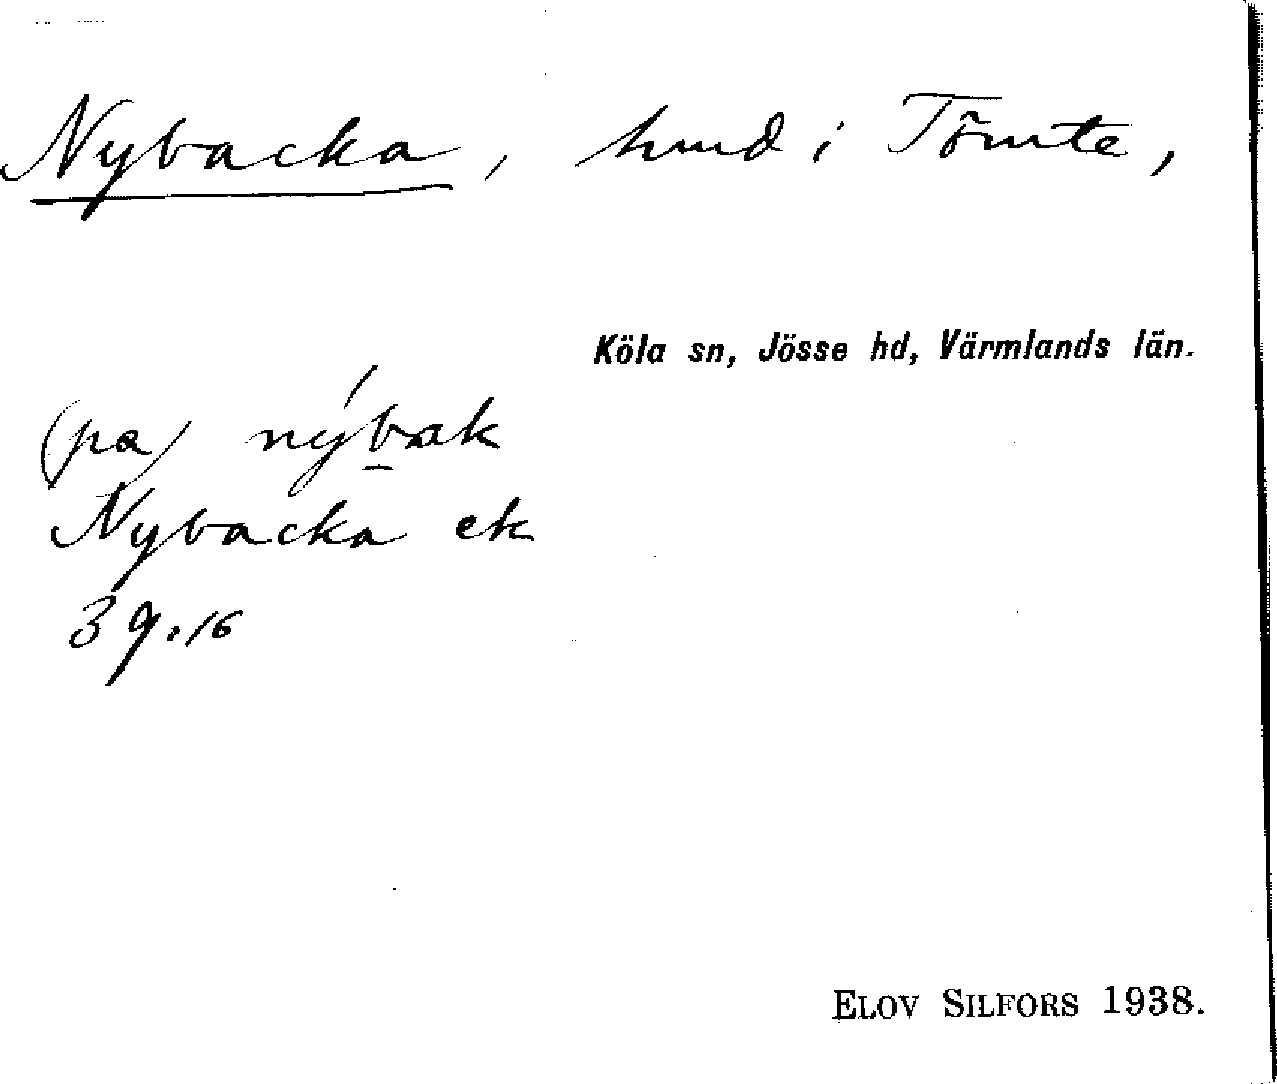 Nybacka, hmd i Tömte,
Köla sn, Jösse hd, Värmlands län.
(pa) nýbak
Nybacka ek
39.16
ELOV SILFORS 1938.